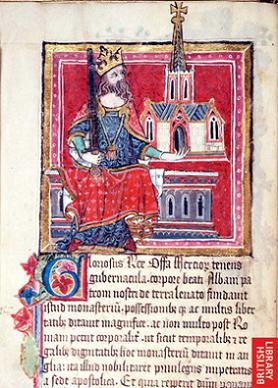 Gloriosus Rex Offa Mercior tenens
gubernacula, corpore beati Albani pa
tron nostri de terra levato fundavit
istud monasteriũ, possessionibz et ac multis liber
tatibz ditavit magnifice. ac non multo post Ro
mam petiit corporalit ut sicut temporalibz et re
galibz dignitatibz hoc monasteriũ ditavit in an
glia: ita illud nobilitaret privilegiis impetratis
a sede apostolica.
BRITISH
LIBRARY